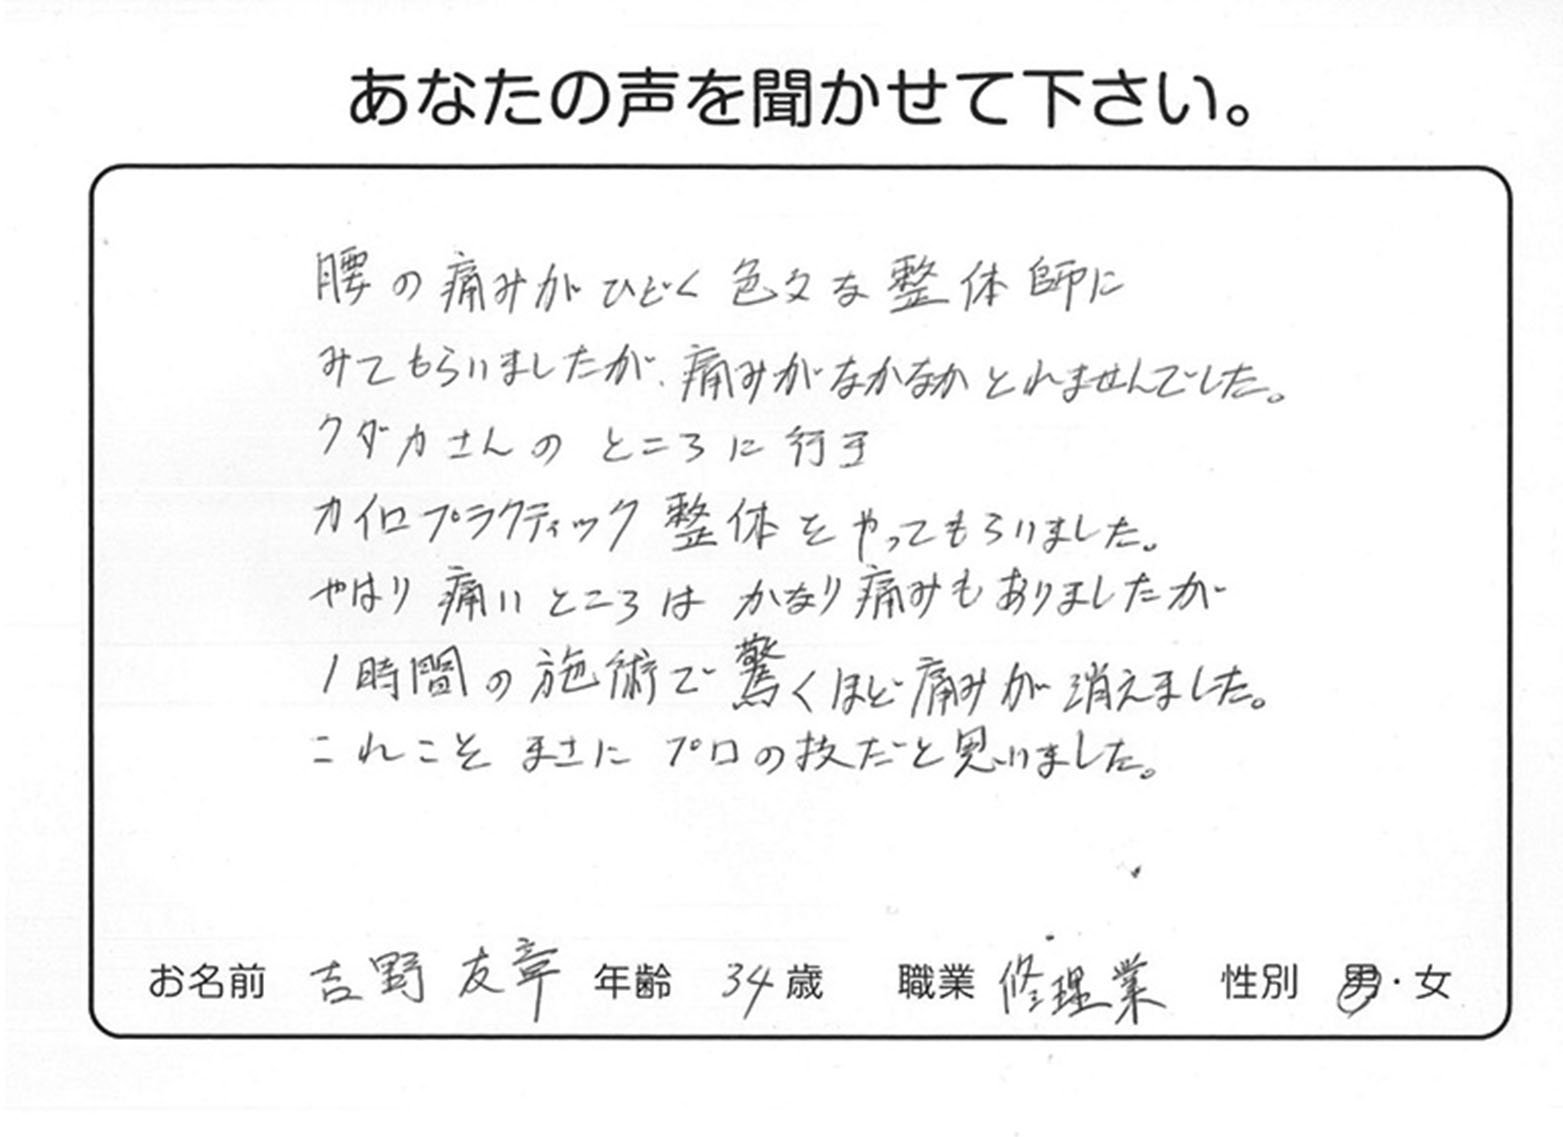 あなたの声を聞かせて下さい。
腰の痛みがひどく色々な整体師に
みてもらいましたが、痛みがなかなかとれませんでした。
クダカさんのところに行き
カイロプラクティック整体をやってもらいました。
やはり痛いところはかなり痛みもありましたが
1時間の施術で驚くほど痛みが消えました。
これこそまさにプロの技だと思いました。
お名前 吉野 友章 年齢 34歳 職業 修理業 性別 男・女